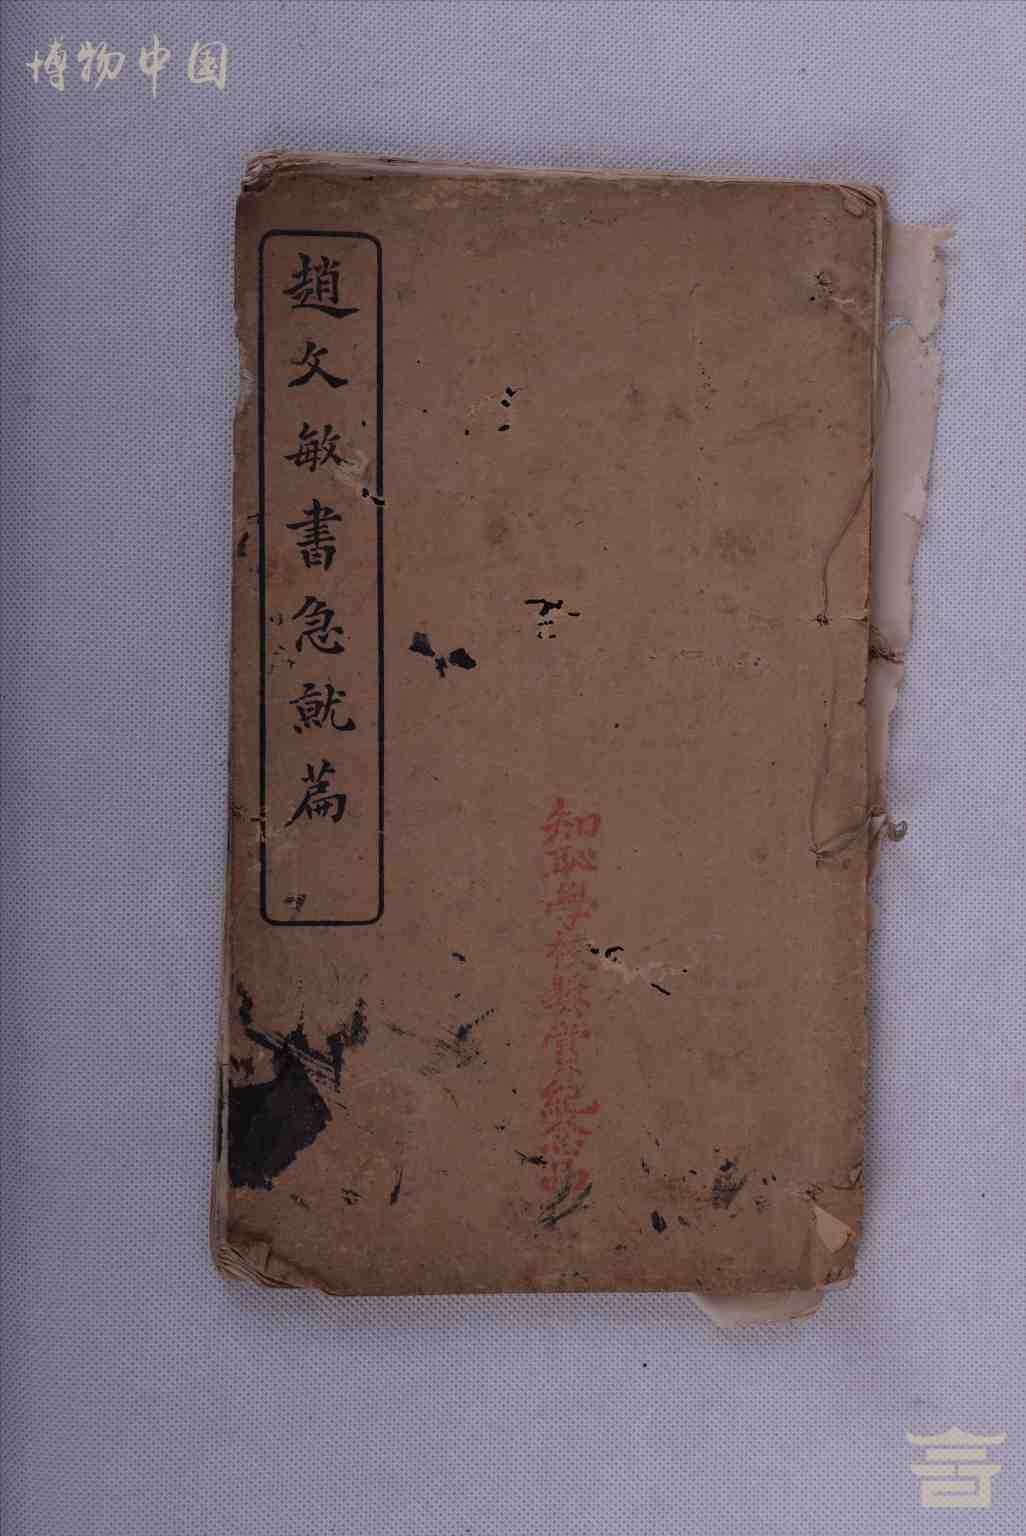 博物中国
趙文敏書急就篇
知恥學校獎賞紀念品